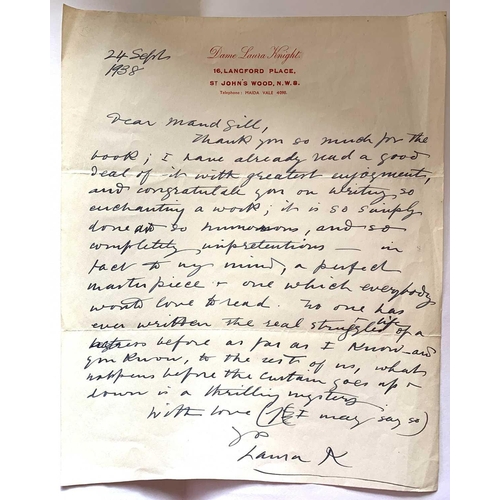 24 Sept
1938
Dame Laura Knight
16, LANGFORD PLACE,
ST JOHN'S WOOD, N.W.8.
Telephone: MAIDA VALE
Dear Maud Gill,
Thank you so much for the
book; I have already read a good
deal of it with greatest enjoyment,
and congratulate you on writing so
enchanting a work; it is so simply
done so humorous, and so
completely unpretentious — in
fact to my mind, a perfect
masterpiece + one which everybody
would love to read. No one has
ever written the real struggles life of a
before as far as I know — and
you know, to the rest of us, what
happens before the curtain goes up +
down is a thrilling mystery.
With love (if I may say so)
Laura K